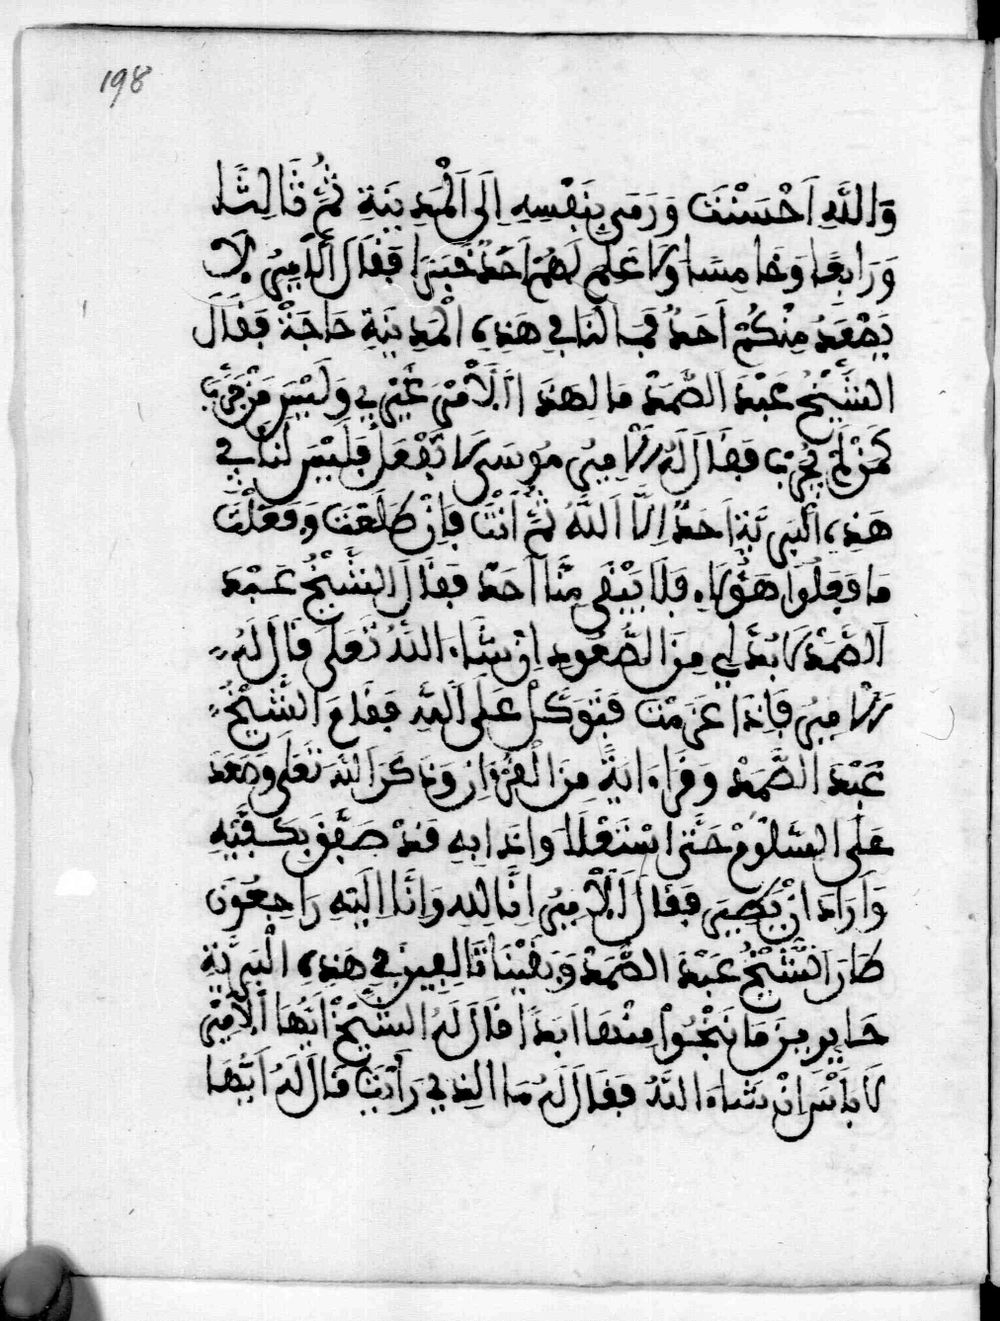 198
وَاللَّهِ اَحْسَنْتَ وَرَمَى بِنَفْسِهِ اِلَى اَلْمَدِينَةِ ثُمَّ ثَالِثًا
وَرَابِعًا وَخَامِسًا وَلَا عَلِمَ لَهُمْ اَحَدٌ خَبَرًا فَقَالَ اَلَامِيرُ لَا
يَصْعَدُ مِنْكُمْ اَحَدٌ فَمَا لَنَا فِي هَذِهِ الْمَدِينَةِ حَاجَةٌ فَقَالَ
الشَّيْخُ عَبْدَ الصَّمَدْ مَا لِهَذَا اَلَامْرِ غَيْرِي وَلَيْسَ مَنْ جَرَّبَ
كَمَنْ لَمْ يُجَرِّبْ فَقَالَ لَهُ الَامِيرُ مُوسَى لَا تَفْعَلْ فَلَيْسَ لَنَا فِي
هَذِهِ الْبَرِيَّةِ اَحَدٌ اِلَّا اَللَّهُ ثُمَّ اَنْتَ فَإِنْ طَلَعْتَ وَفَعَلْتَ
مَا فَعَلُوا هَؤُلَاءِ فَلَا يَبْقَى مِنَّا اَحَدٌ فَقَالَ الشَّيْخُ عَبْدَ
اَلصَّمَدْ لَا بُدَّ لِي مِنَ الصُّعُودِ اِنْ شَاءَ اللَّهُ تَعَلَى قَالَ لَهُ
الَامِيرُ فَإِذَا عَزَمْتَ فَتَوَكَّلْ عَلَى اَللَّهِ فَقَامَ الشَّيْخُ
عَبْدَ الصَّمَدْ وَقَرَاءَ ايَةً مِنَ الْقُرْءَانِ وَذَكَرَ اَللَّهَ تَعَلَى وَصَعَدَ
عَلَى السَّلُّومْ حَتَّى اسْتَعْلَا وَاِذَا بِهِ قَدْ صَفَّقَ بِكَفَّيْهِ
وَاَرَادَ اَنْ يَطِيرَ فَقَالَ اَلَامِيرُ اِنَّا لِلهِ وَإِنَّا اِلَيْهِ رَاجِعُونَ
طَارَ الشَّيْخُ عَبْدَ الصَّمَدْ وَبَقَيْنَا تَالِفِينَ فِي هَذِهِ الْبَرِيَّةِ
حَايِرِينَ مَا نَنْجُوا مِنْهَا اَبَدًا قَالَ لَهُ الشَّيْخْ اَيُّهَا اَلَامِيرُ
لَا بَاْسَ اِنْ شَاءَ اللَّهُ فَقَالَ لَهُ مَا الذِي رَأَيْتَ قَالَ لَهُ اَيُّهَا